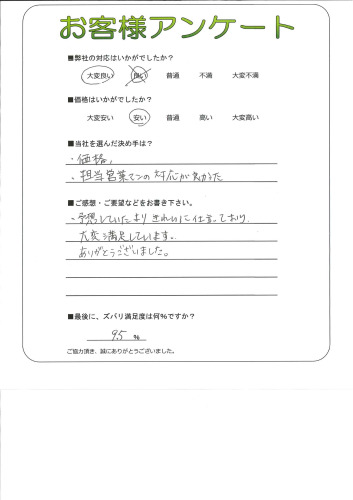 お客様アンケート
■弊社の対応はいかがでしたか？
大変良い 良い 普通 不満 大変不満
■価格はいかがでしたか？
大変安い 安い 普通 高い 大変高い
■当社を選んだ決め手は？
・価格，
・担当営業マンの対応が良かった
■ご感想・ご要望などをお書き下さい。
・予想していたより きれいに仕上っており
大変満足しています。
ありがとうございました。
■最後に、ズバリ満足度は何％ですか？
95 ％
ご協力頂き、誠にありがとうございました。